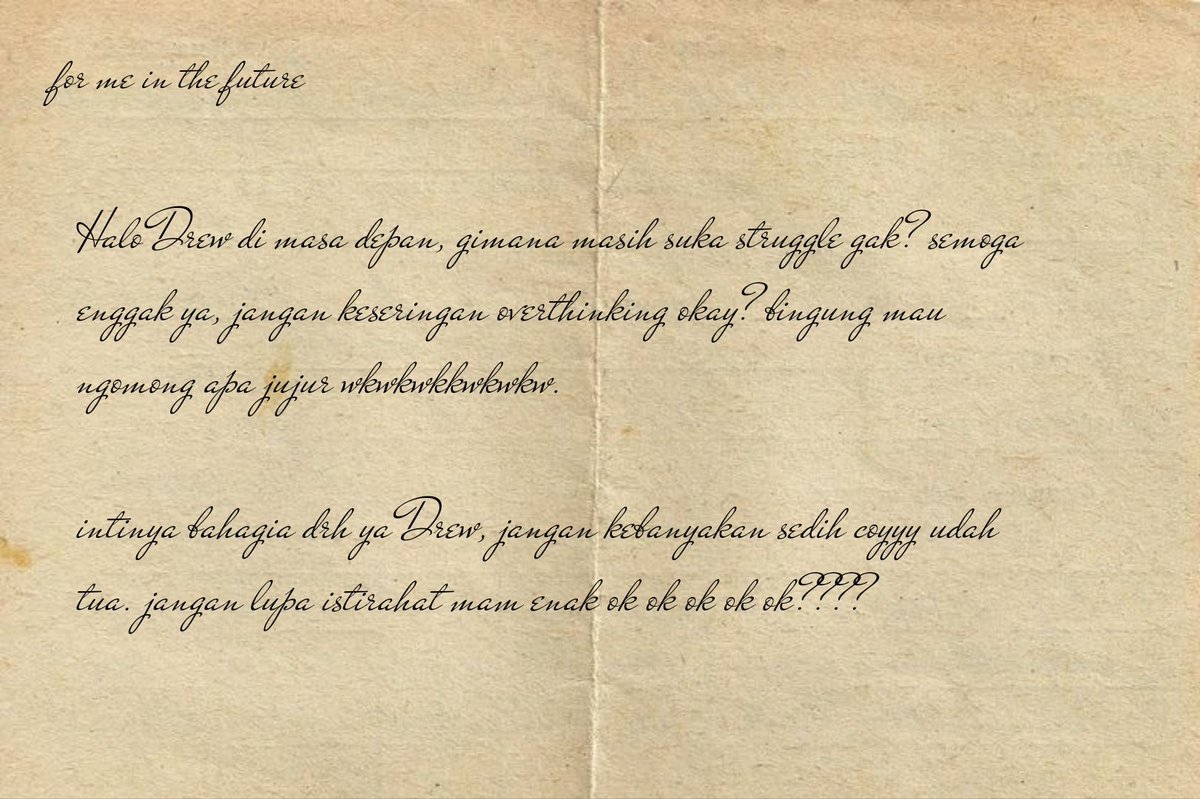 for me in the future
Halo Drew di masa depan, gimana masih suka struggle gak? semoga
enggak ya, jangan keseringan overthinking okay? bingung mau
ngomong apa jujur wkwkwkkwkwkw.
intinya bahagia drh ya Drew, jangan kebanyakan sedih coyyy udah
tua. jangan lupa istirahat mam enak ok ok ok ok ok????